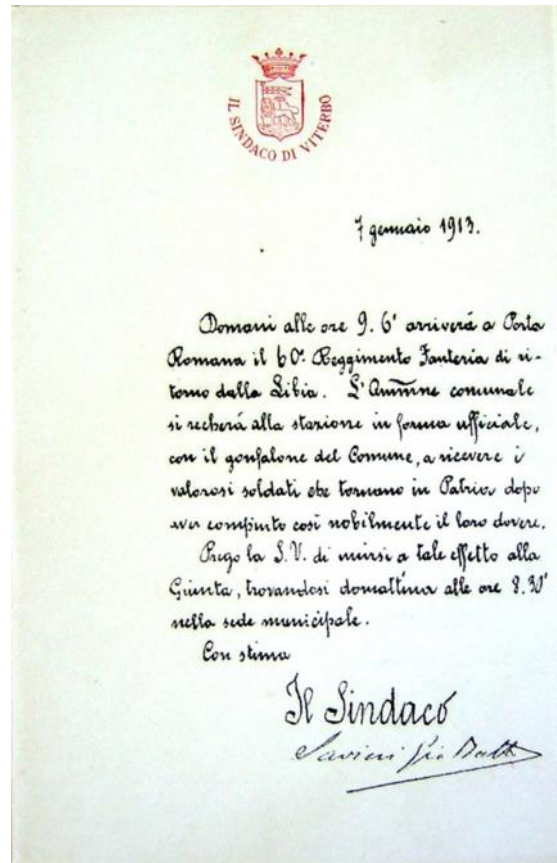 IL SINDACO DI VITERBO
7 gennaio 1913.
Domani alle ore 9.6' arriverà a Porta
Romana il 60º Reggimento Fanteria di ri-
torno dalla Libia. L'Ammne comunale
si recherà alla stazione in forma ufficiale,
con il gonfalone del Comune, a ricevere i
valorosi soldati che tornano in Patria dopo
aver compiuto così nobilmente il loro dovere.
Prego la S.V. di unirsi a tale effetto alla
Giunta, trovandosi domattina alle ore 8.30'
nella sede municipale.
Con stima
Il Sindaco